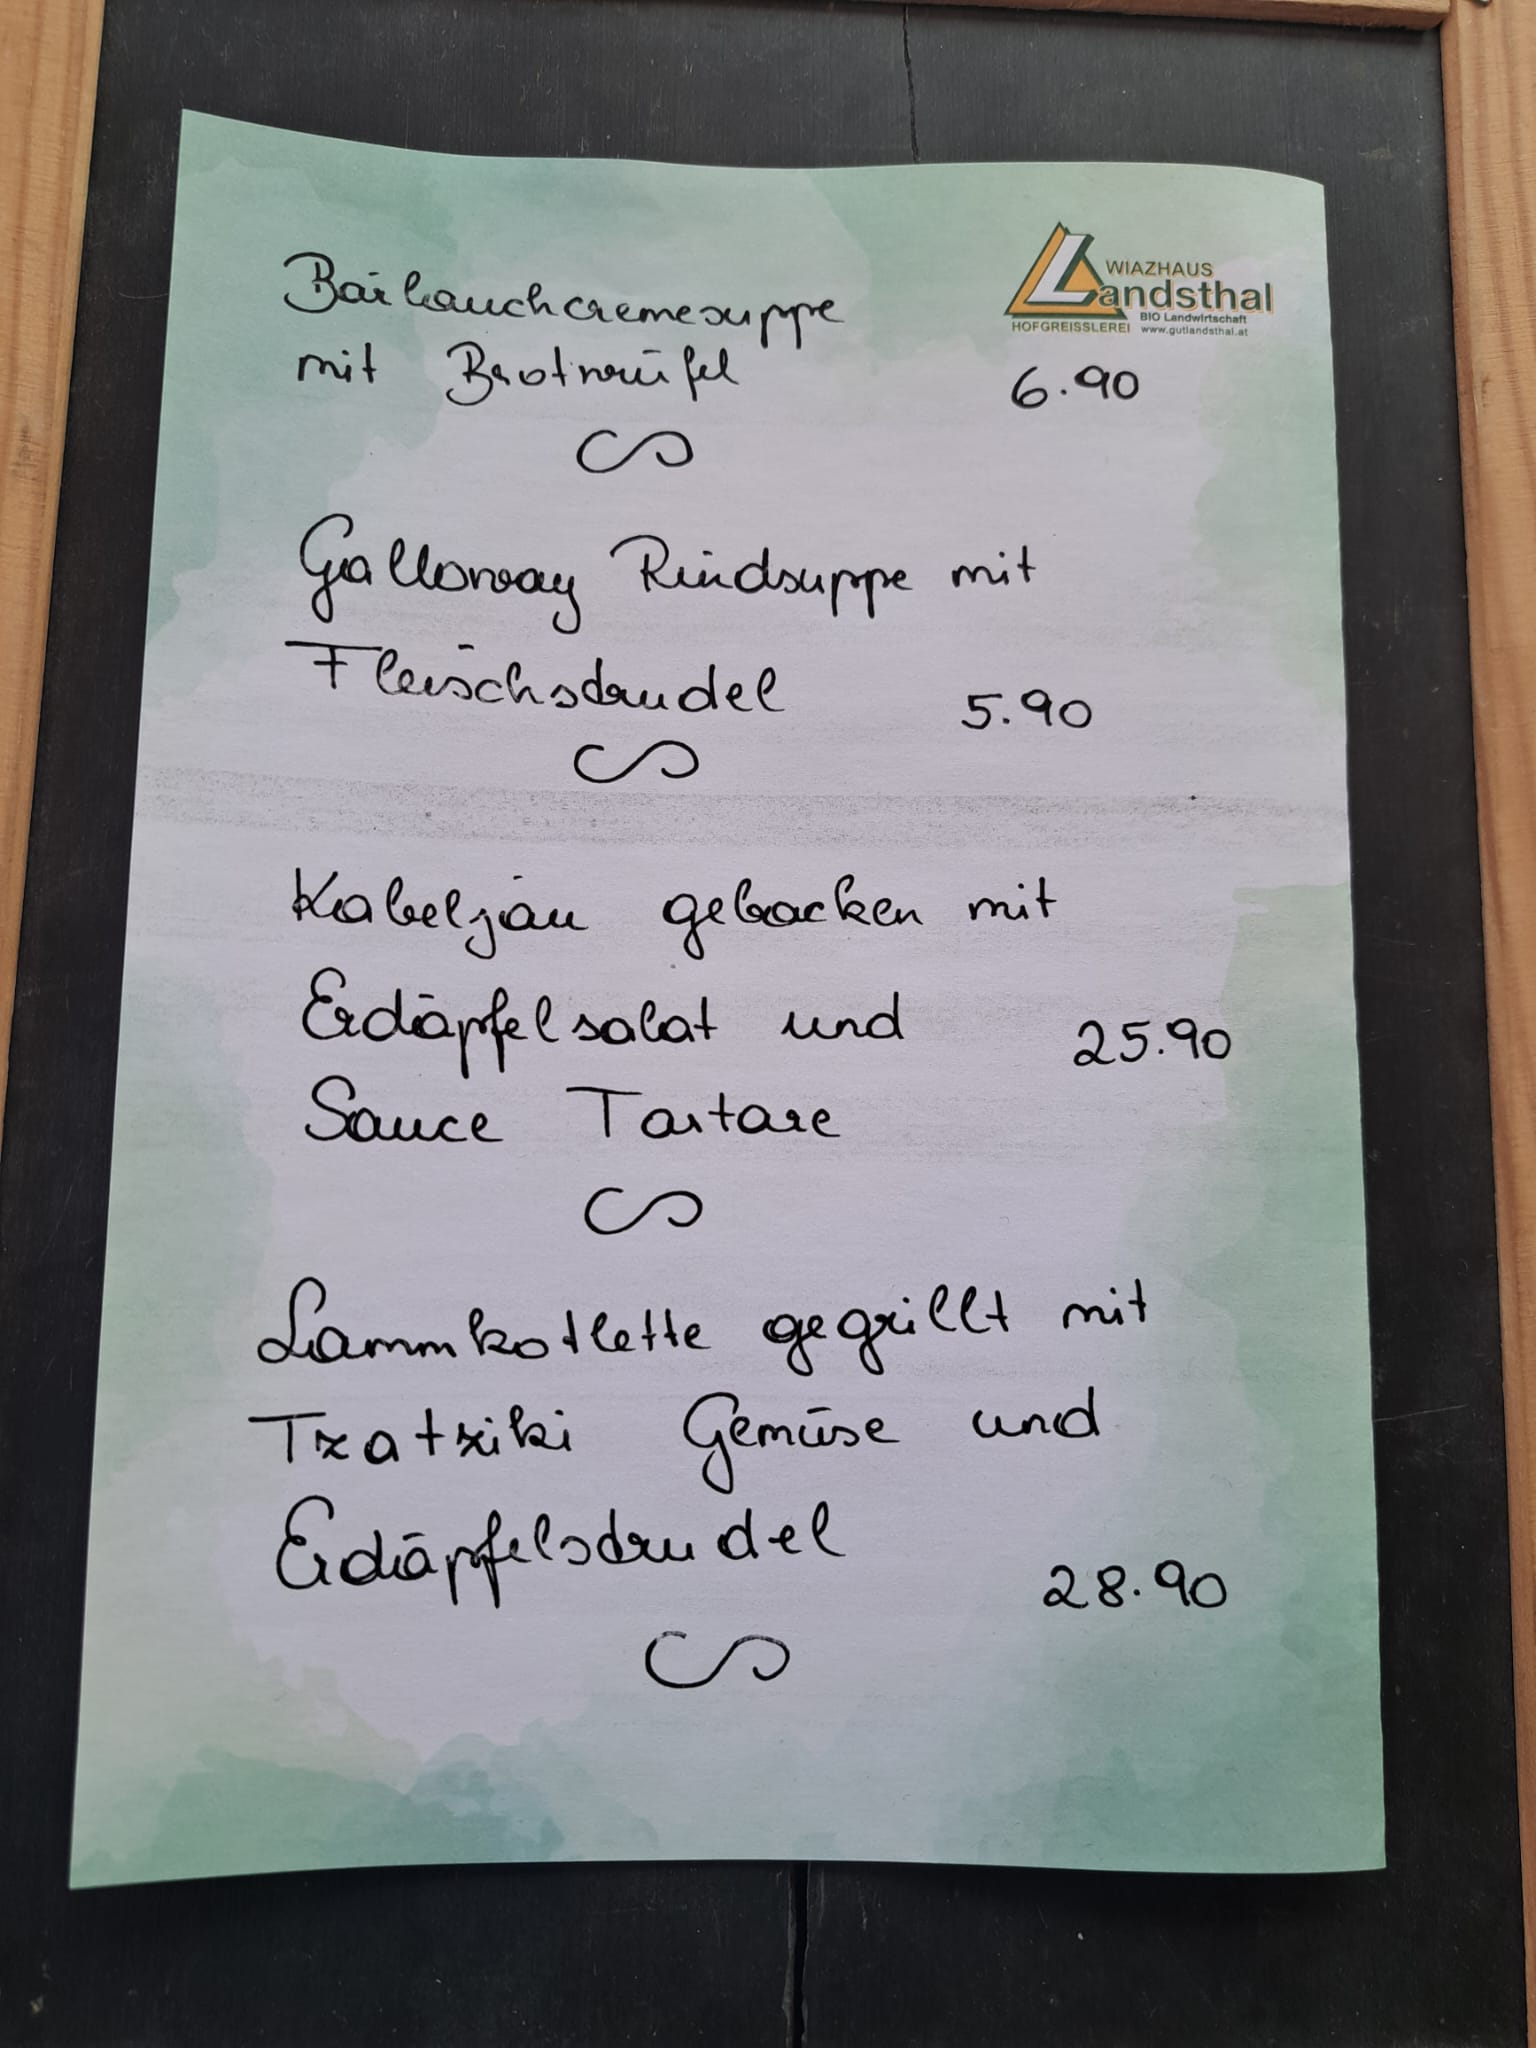 WIAZHAUS
Landsthal
BIO Landwirtschaft
HOFGREISSLEREI www.gutlandsthal.at
Bärlauchcremesuppe
mit Brotwürfel 6.90
Galloway Rindsuppe mit
Fleischstrudel 5.90
Kabeljau gebacken mit
Erdäpfelsalat und 25.90
Sauce Tartare
Lammkotlette gegrillt mit
Tzatziki Gemüse und
Erdäpfelstrudel 28.90